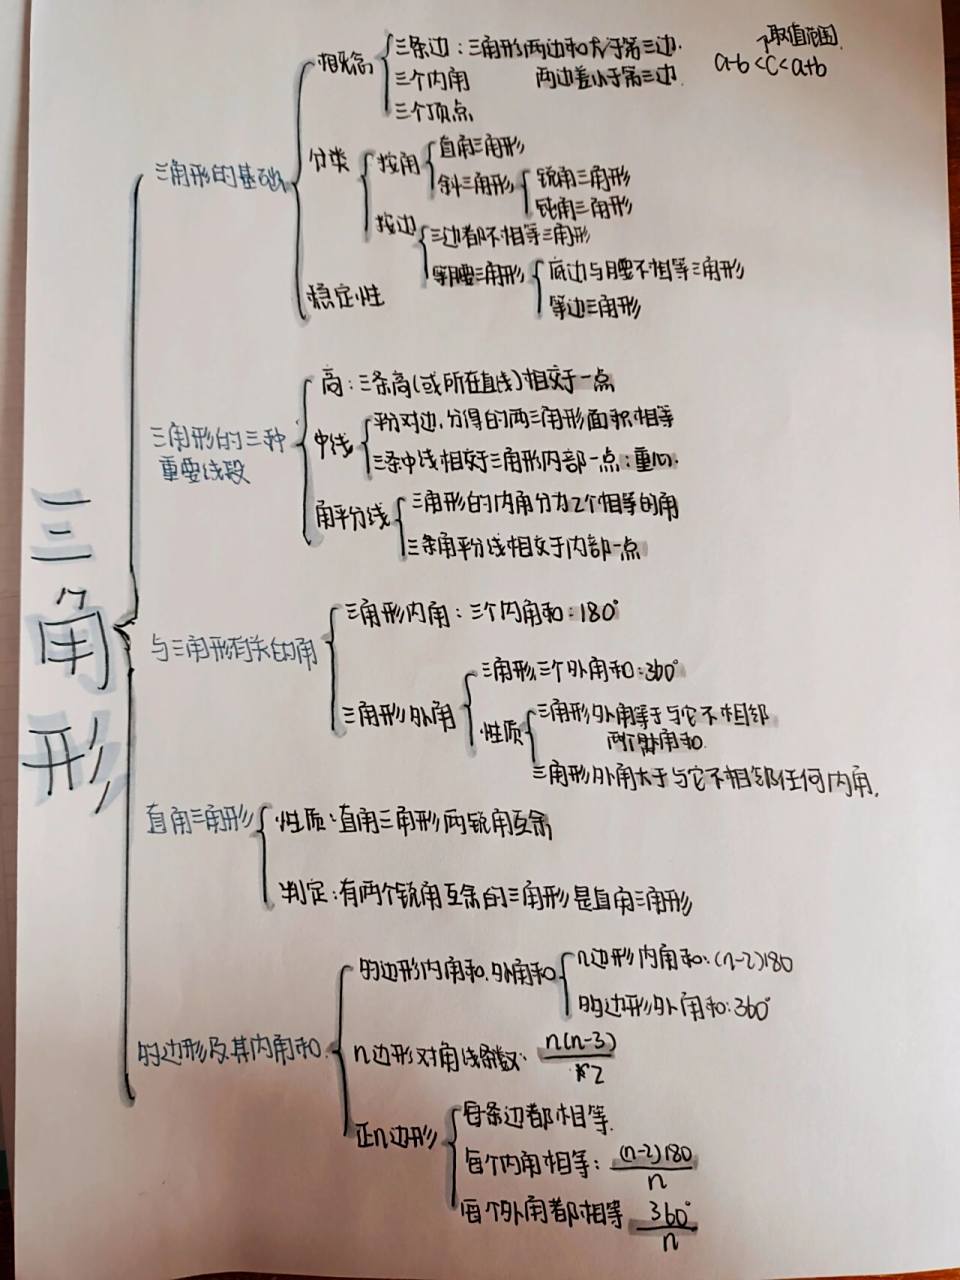 三角形
三角形的基础
相关概念
三条边：三角形两边和大于第三边.
两边差小于第三边.
取值范围
a-b<c<a+b
三个内角
三个顶点
分类
按角
直角三角形
斜三角形
锐角三角形
钝角三角形
按边
三边都不相等三角形
等腰三角形
底边与腰不相等三角形
等边三角形
稳定性
三角形的三种
重要线段
高：三条高(或所在直线)相交于一点
中线
平分对边,分得的两三角形面积相等
三条中线相交于三角形内部一点：重心.
角平分线
三角形的内角分为2个相等的角
三条角平分线相交于内部一点
与三角形有关的角
三角形内角：三个内角和：180°
三角形外角
三角形三个外角和：360°
性质
三角形外角等于与它不相邻
两个内角和.
三角形外角大于与它不相邻任何内角.
直角三角形
性质：直角三角形两锐角互余
判定：有两个锐角互余的三角形是直角三角形
多边形及其内角和
多边形内角和.外角和
n边形内角和：(n-2)180
多边形外角和：360°
n边形对角线条数：n(n-3)/2
正n边形
每条边都相等.
每个内角相等：(n-2)180/n
每个外角都相等 360°/n